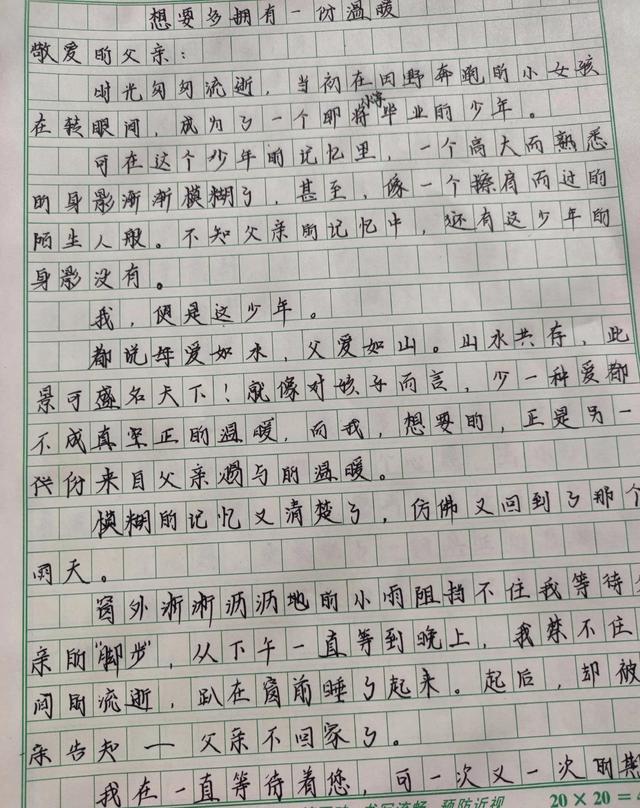 想要多拥有一份温暖
敬爱的父亲：
时光匆匆流逝，当初在田野奔跑的小女孩
在转眼间，成为了一个即将小学毕业的少年。
可在这个少年的记忆里，一个高大而熟悉
的身影渐渐模糊了，甚至，像一个擦肩而过的
陌生人般。不知父亲的记忆中，还有这少年的
身影没有。
我，便是这少年。
都说母爱如水，父爱如山。山水共存，此
景可盛名天下！就像对孩子而言，少一种爱都
不成真正的温暖，而我，想要的，正是另一
份来自父亲赐与的温暖。
模糊的记忆又清楚了，仿佛又回到了那个
雨天。
窗外淅淅沥沥地的小雨阻挡不住我等待
亲的“脚步”，从下午一直等到晚上，我禁不住
间的流逝，趴在窗前睡了起来。起后，却被
亲告知——父亲不回家了。
我在一直等待着您，可一次又一次的期
预防近视 20×20=